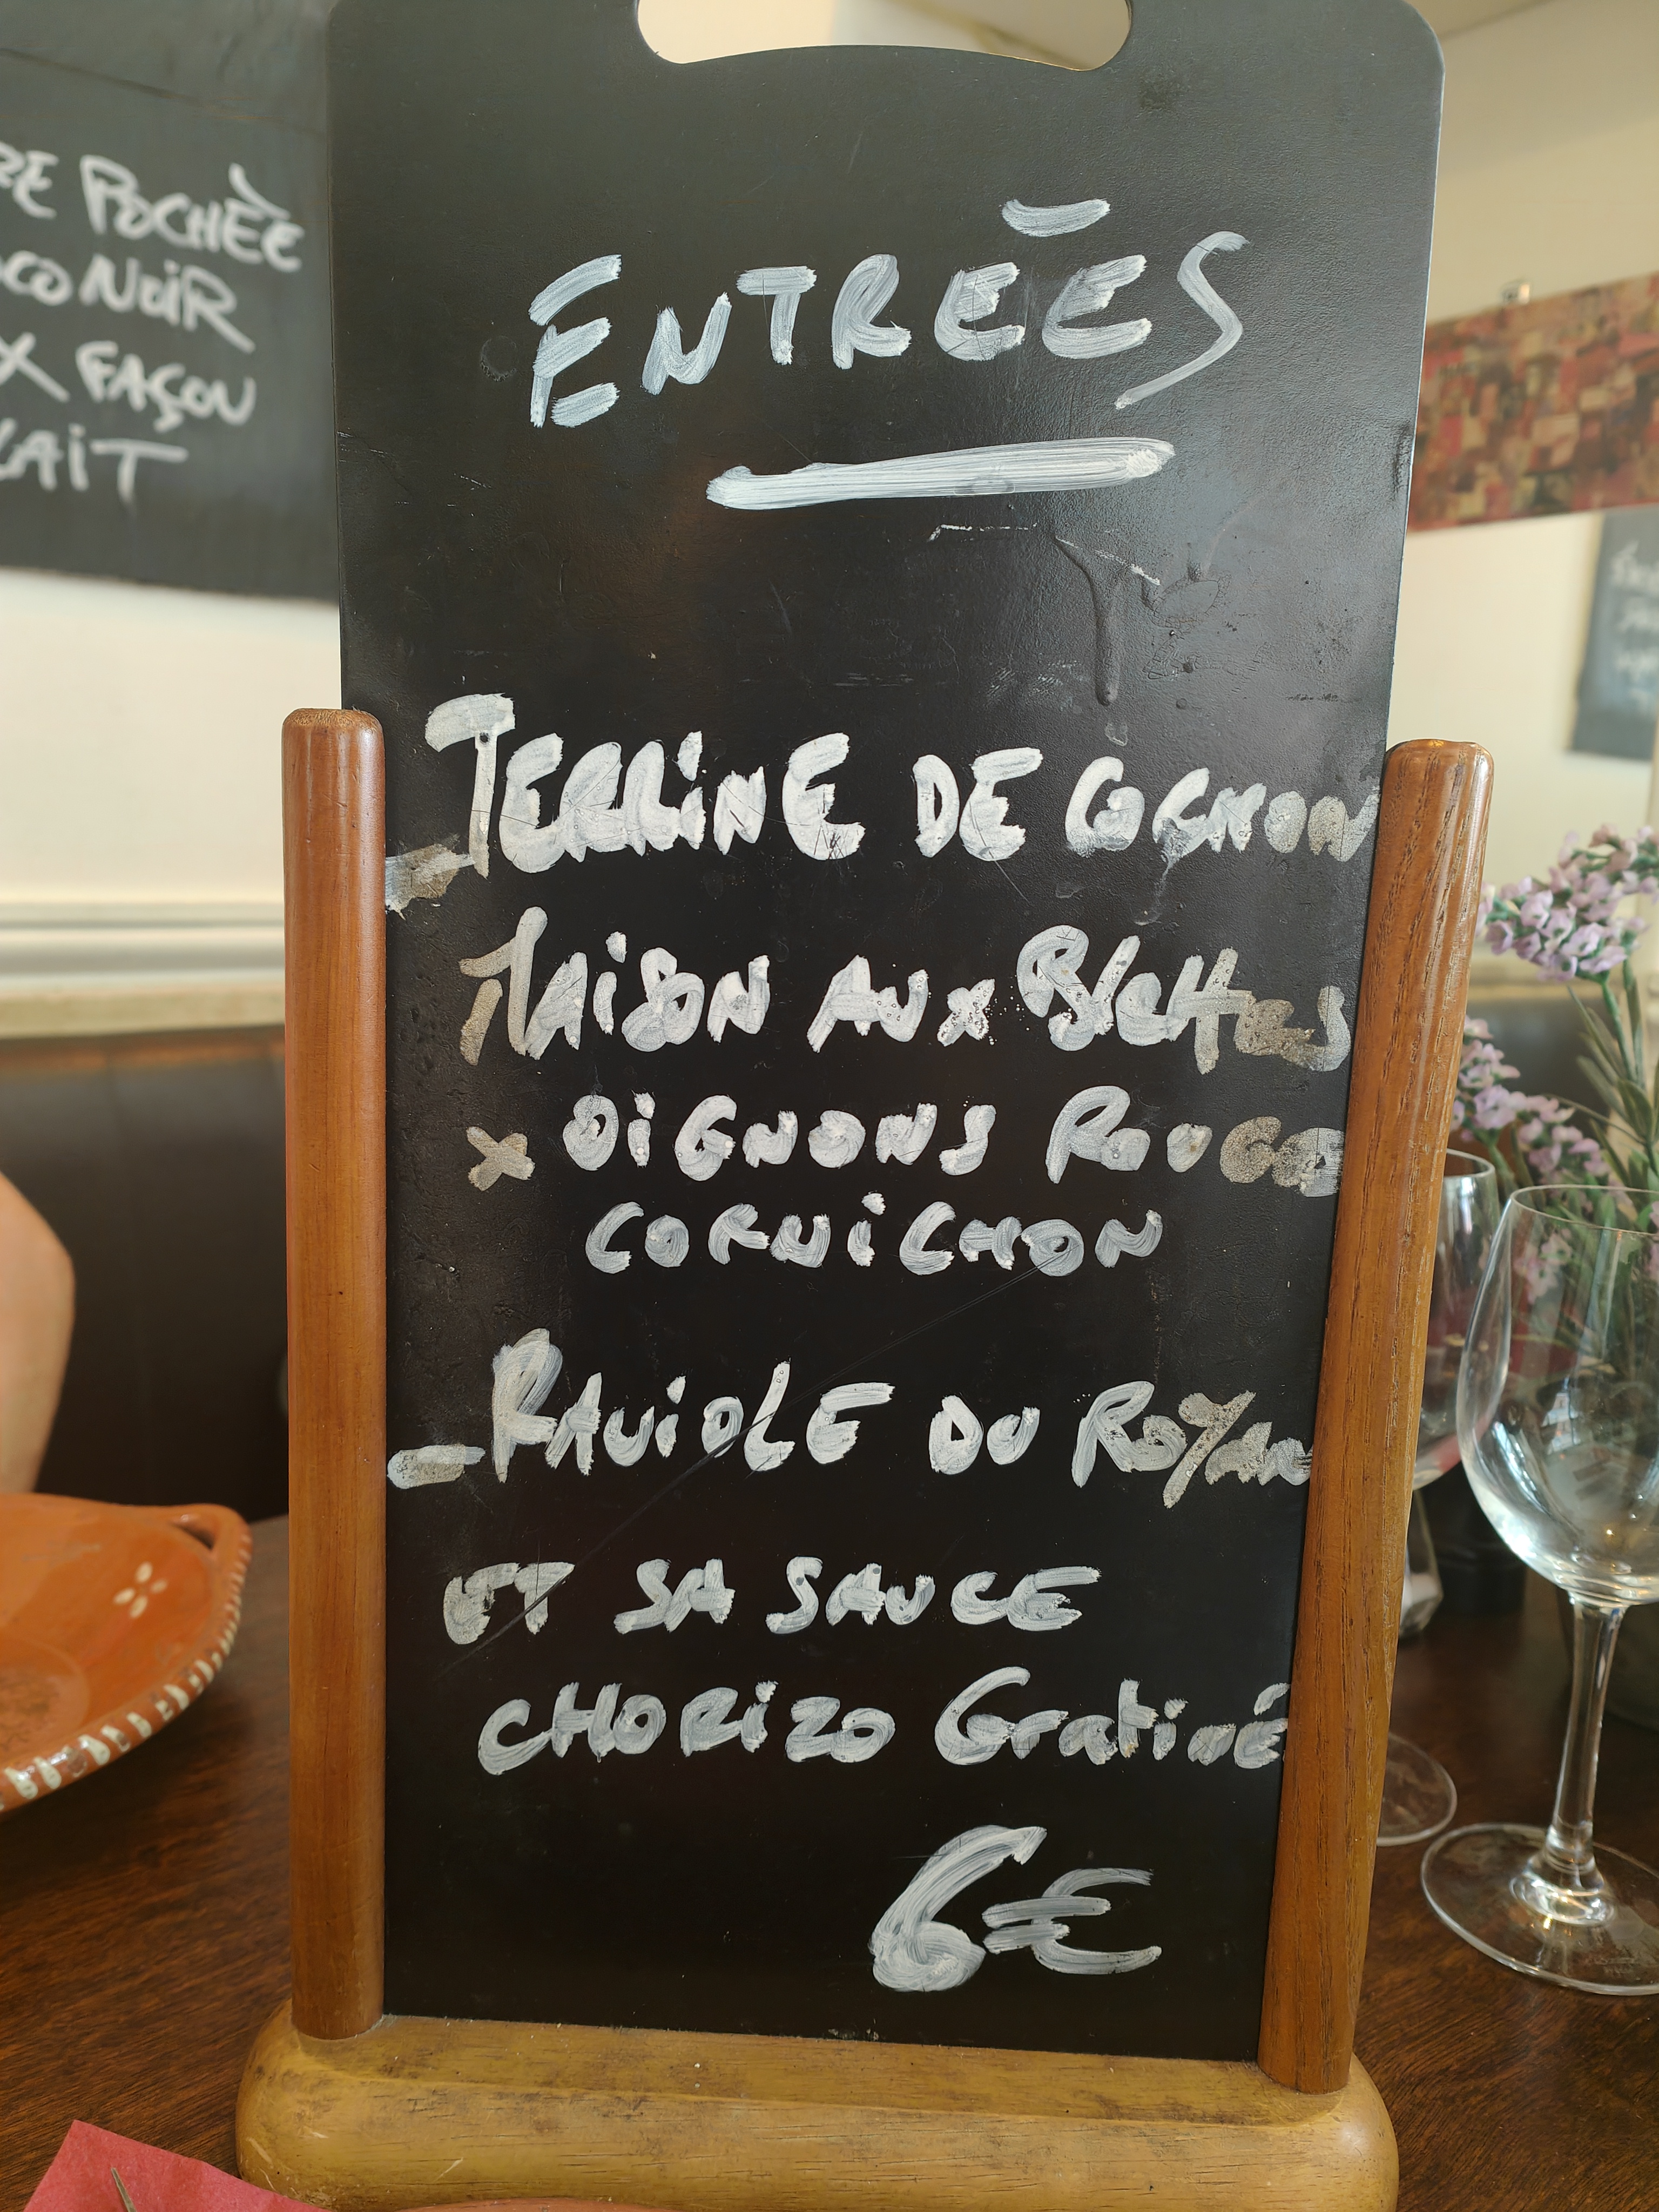 POCHÈE
NOIR
X FAÇON
LAIT
ENTRÉES
- TERRINE DE COCHON
MAISON AUX Blettes
x OIGNONS ROUGES
CORNICHON
- RAVIOLE DU ROYAN
ET SA SAUCE
CHORIZO Gratiné
6€